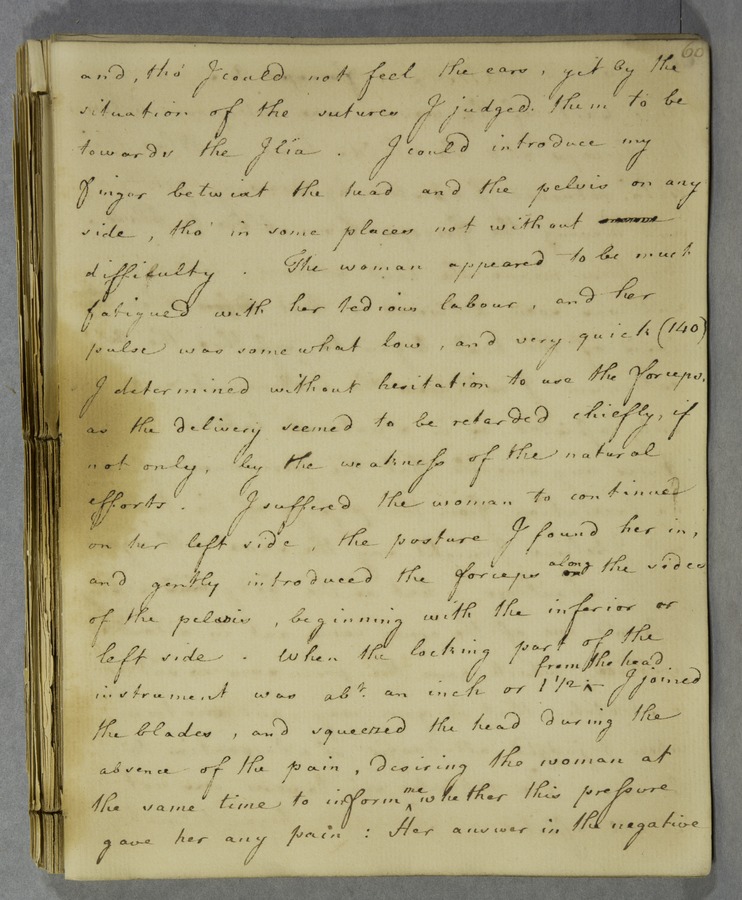 60
and, tho' I could not feel the ears, yet by the
situation of the sutures I judged them to be
towards the Ilia. I could introduce my
finger betwixt the head and the pelvis on any
side, tho' in some places not without
difficulty. The woman appeared to be much
fatigued with her tedious labour, and her
pulse was somewhat low, and very quick (140)
I determined without hesitation to use the forceps,
as the delivery seemed to be retarded chiefly, if
not only, by the weakness of the natural
efforts. I suffered the woman to continue
on her left side, the posture I found her in,
and gently introduced the forceps along the sides
of the pelvis, beginning with the inferior or
left side. When the locking part of the
instrument was abt. an inch or 1 1/2 from the head I joined
the blades, and squeezed the head during the
absence of the pain, desiring the woman at
the same time to inform me whether this pressure
gave her any pain: Her answer in the negative